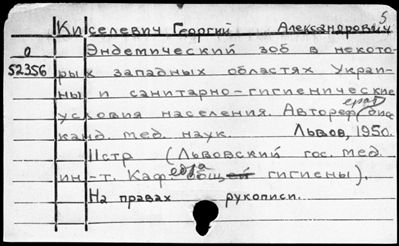 5
Киселевич Георгий Александрович
0 Эндемический зоб в некото-
52356 рых западных областях Украи-
ны и санитарно-гигиенические
условия населения. Автореферат дис
канд. мед. наук. Львов, 1950.
11стр (Львовский гос. мед.
ин-т. Кафедра общей гигиены).
На правах рукописи.